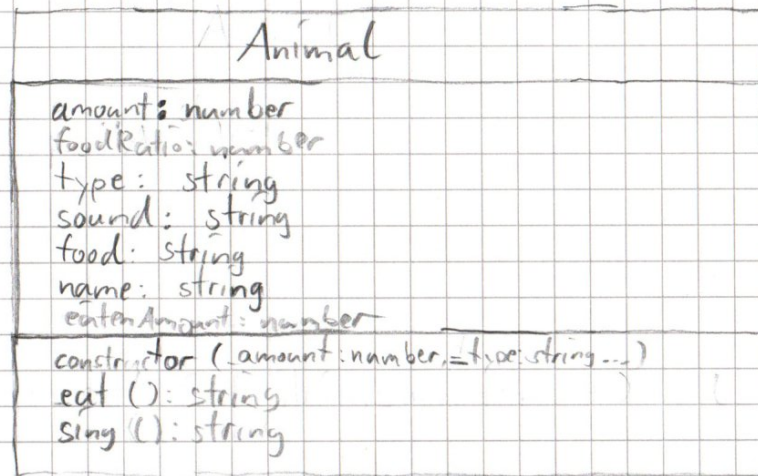 Animal
amount: number
foodRatio: number
type: string
sound: string
food: string
name: string
eatenAmount: number
constructor (amount: number, type: string...)
eat (): string
sing (): string